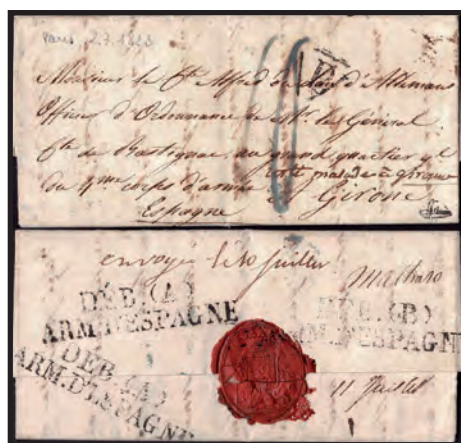 Paris, 2.7.1823
Monsieur le Cte Alfred de d'Allemans
Officier d'Ordonnance de Mr. le Général
Cte de Rastignac au grand quartier gl
resté malade à girone
du 4me corps d'armée à Girone
Espagne
envoyée le 10 juillet
Matharo
DÉB. (A)
ARM. D'ESPAGNE
DÉB. (B)
ARM. D'ESPAGNE
DÉB. (A)
ARM. D'ESPAGNE
11 Juillet